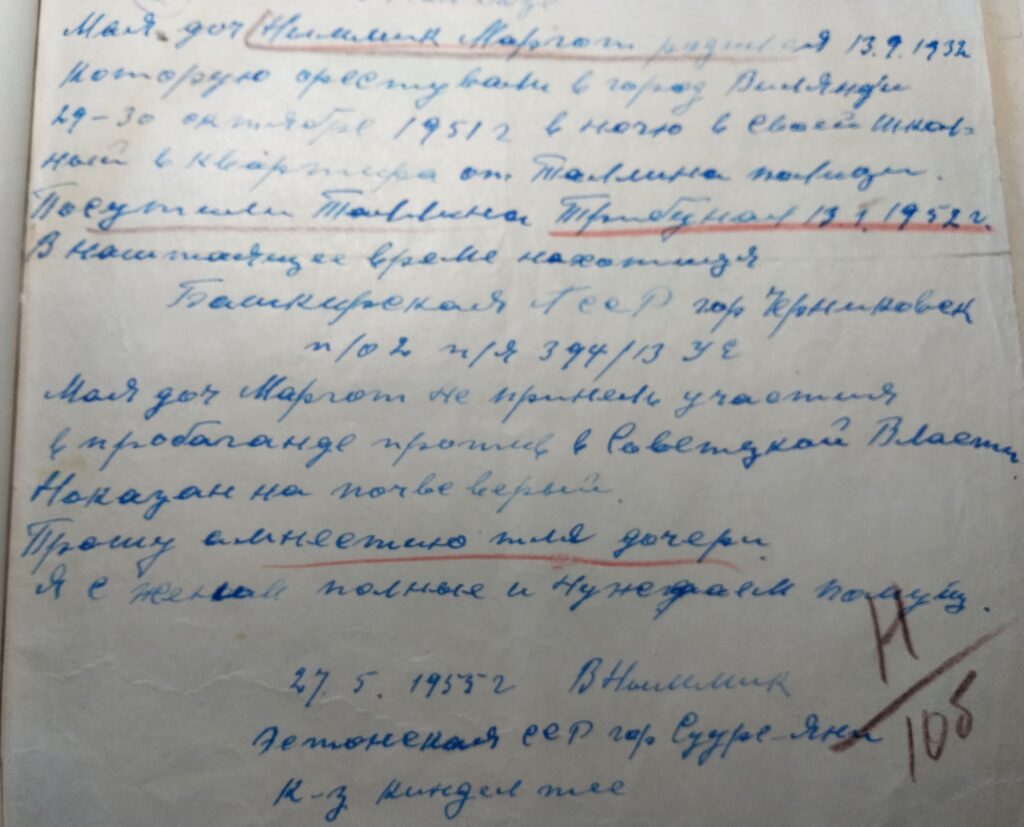 Мая доч Ныммик Маргот родился 13.9.1932
Которую арестували в город Вилянди
29-30 октябре 1951 г в ночю в своей школь-
ный в квартира от Таллина полици.
Посутили Таллина Трибунал 13.1.1952 г.
В наштаящее време нахотиця
Башкирская АССР гор Черниковск
п/о 2 п/я 394/13 УЕ
Мая доч Маргот не принель участия
в пробаганде против в Советцкой Власти
Наказан на почве верый.
Прошу амнестию тля дочери.
Я с женой полные и нуждаем помущ.
27. 5. 1955 г ВНыммик
Эстонская ССР гор Сууре-Яни
К-з Киндел тее
Н/105